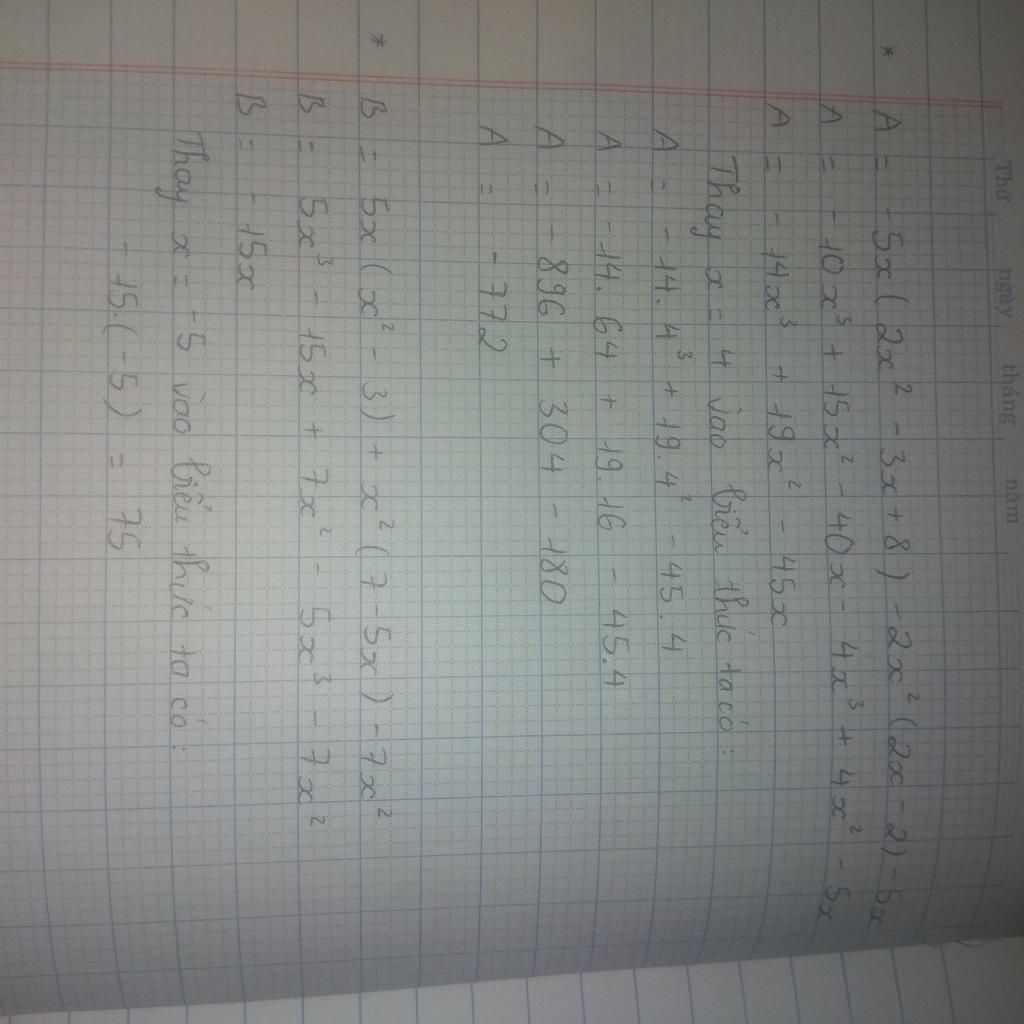 Thứ ngày tháng năm
* A = - 5x ( 2x² - 3x + 8 ) - 2x² ( 2x - 2 ) - 5x
A = - 10x³ + 15x² - 40x - 4x³ + 4x² - 5x
A = - 14x³ + 19x² - 45x
Thay x = 4 vào biểu thức ta có :
A = - 14. 4³ + 19. 4² - 45. 4
A = - 14. 64 + 19. 16 - 45. 4
A = - 896 + 304 - 180
A = - 772
* B = 5x ( x² - 3 ) + x² ( 7 - 5x ) - 7x²
B = 5x³ - 15x + 7x² - 5x³ - 7x²
B = - 15x
Thay x = -5 vào biểu thức ta có :
- 15. ( - 5 ) = 75